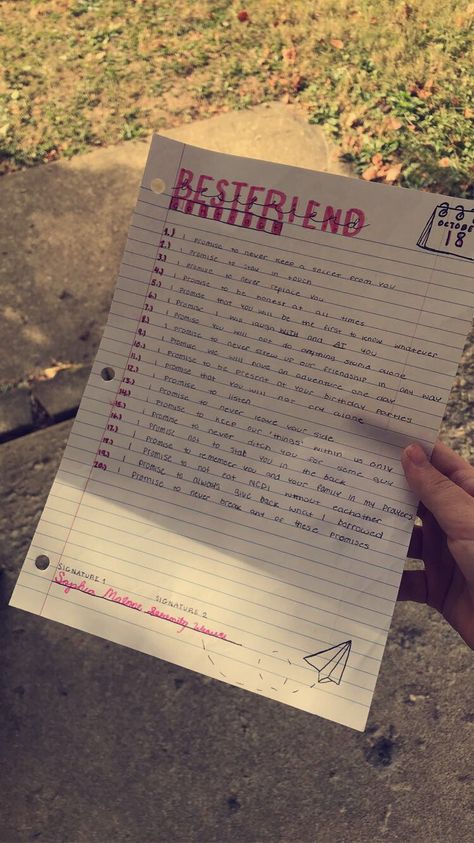 BESTFRIEND
bestfriend
CONTRACT
OCTOBER
18
1.) I promise to never keep a secret from you
2.) I promise to stay in touch
3.) I promise to never replace you
4.) I promise to be honest at all times
5.) I promise that you will be the first to know whatever
6.) I promise I will laugh WITH and AT you
7.) I promise you will not do anything stupid alone
8.) I promise to never screw up our friendship in any way
9.) I promise we will have an adventure one day
10.) I promise to be present at your birthday parties
11.) I promise that you will not cry alone
12.) I promise to listen
13.) I promise to never leave your side
14.) I promise to keep our "things" within us only
15.) I promise to never ditch you for some guy
16.) I promise not to stab you in the back
17.) I promise to remember you and your family in my prayers
18.) I promise to not eat NCDI without eachather
19.) I promise to always give back what I borrowed
20.) I promise to never break any of these promises
SIGNATURE 1
SIGNATURE 2
Sophia Malone
Serenity